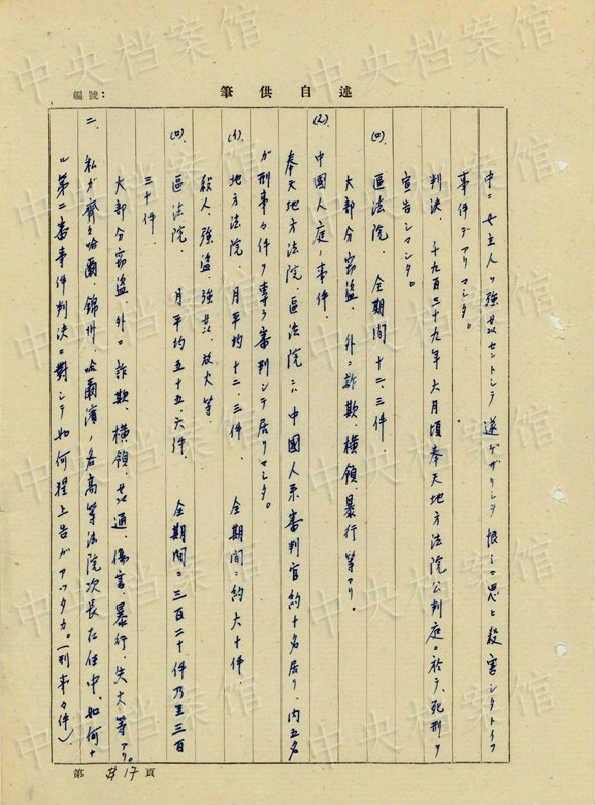 編號：
筆供自述
中ニ女主人ヲ強姦セントシテ遂ゲザリシヲ恨ミニ思ヒ殺害シタトイフ
事件デアリマシタ。
判決、十九百三十九年六月頃奉天地方法院公判庭ニ於テ、死刑ヲ
宣告シマシタ。
(ロ) 區法院、全期間十二、三件、
大部分窃盗、外ニ詐欺、横領、暴行等アリ。
(2) 中國人庭ノ事件、
奉天地方法院、區法院ニハ中國人系審判官約十名居リ、内五名
ガ刑事々件ヲ専ラ審判シテ居リマシタ。
(イ) 地方法院、月平均十二、三件、全期間ニ約六十件、
殺人、強盗、強姦、放火等
(ロ) 區法院、月平均五十五、六件、全期間ニ三百二十件乃至三百
三十件、
大部分窃盗、外ニ詐欺、横領、姦通、傷害、暴行、失火等アリ。
二、私ガ齊々哈爾、錦州、哈爾濱ノ各高等法院次長在任中、如何ナ
ル第二審事件判決ニ對シテ如何程上告ガアッタカ。（刑事々件）
第 17 頁
中央档案馆